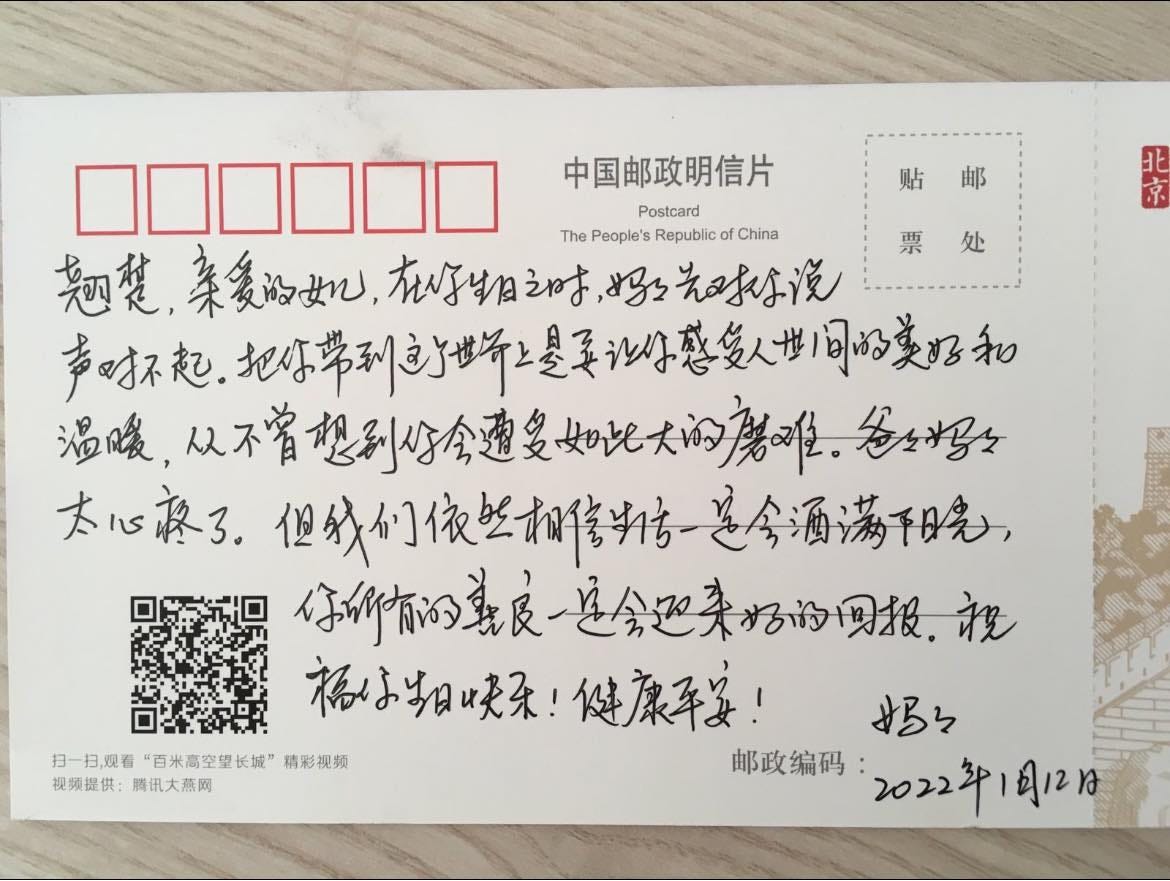 中国邮政明信片
Postcard
The People's Republic of China
贴 邮
票 处
北京
翘楚，亲爱的女儿，在你生日之时，妈妈先对你说
声对不起。把你带到这个世界上是要让你感受人世间的美好和
温暖，从不曾想到你会遭受如此大的磨难。爸爸妈妈
太心疼了。但我们依然相信生活一定会洒满下阳光，
你所有的善良一定会迎来好的回报。祝
福你生日快乐！健康平安！
妈妈
2022年1月12日
邮政编码：
扫一扫,观看“百米高空望长城”精彩视频
视频提供：腾讯大燕网